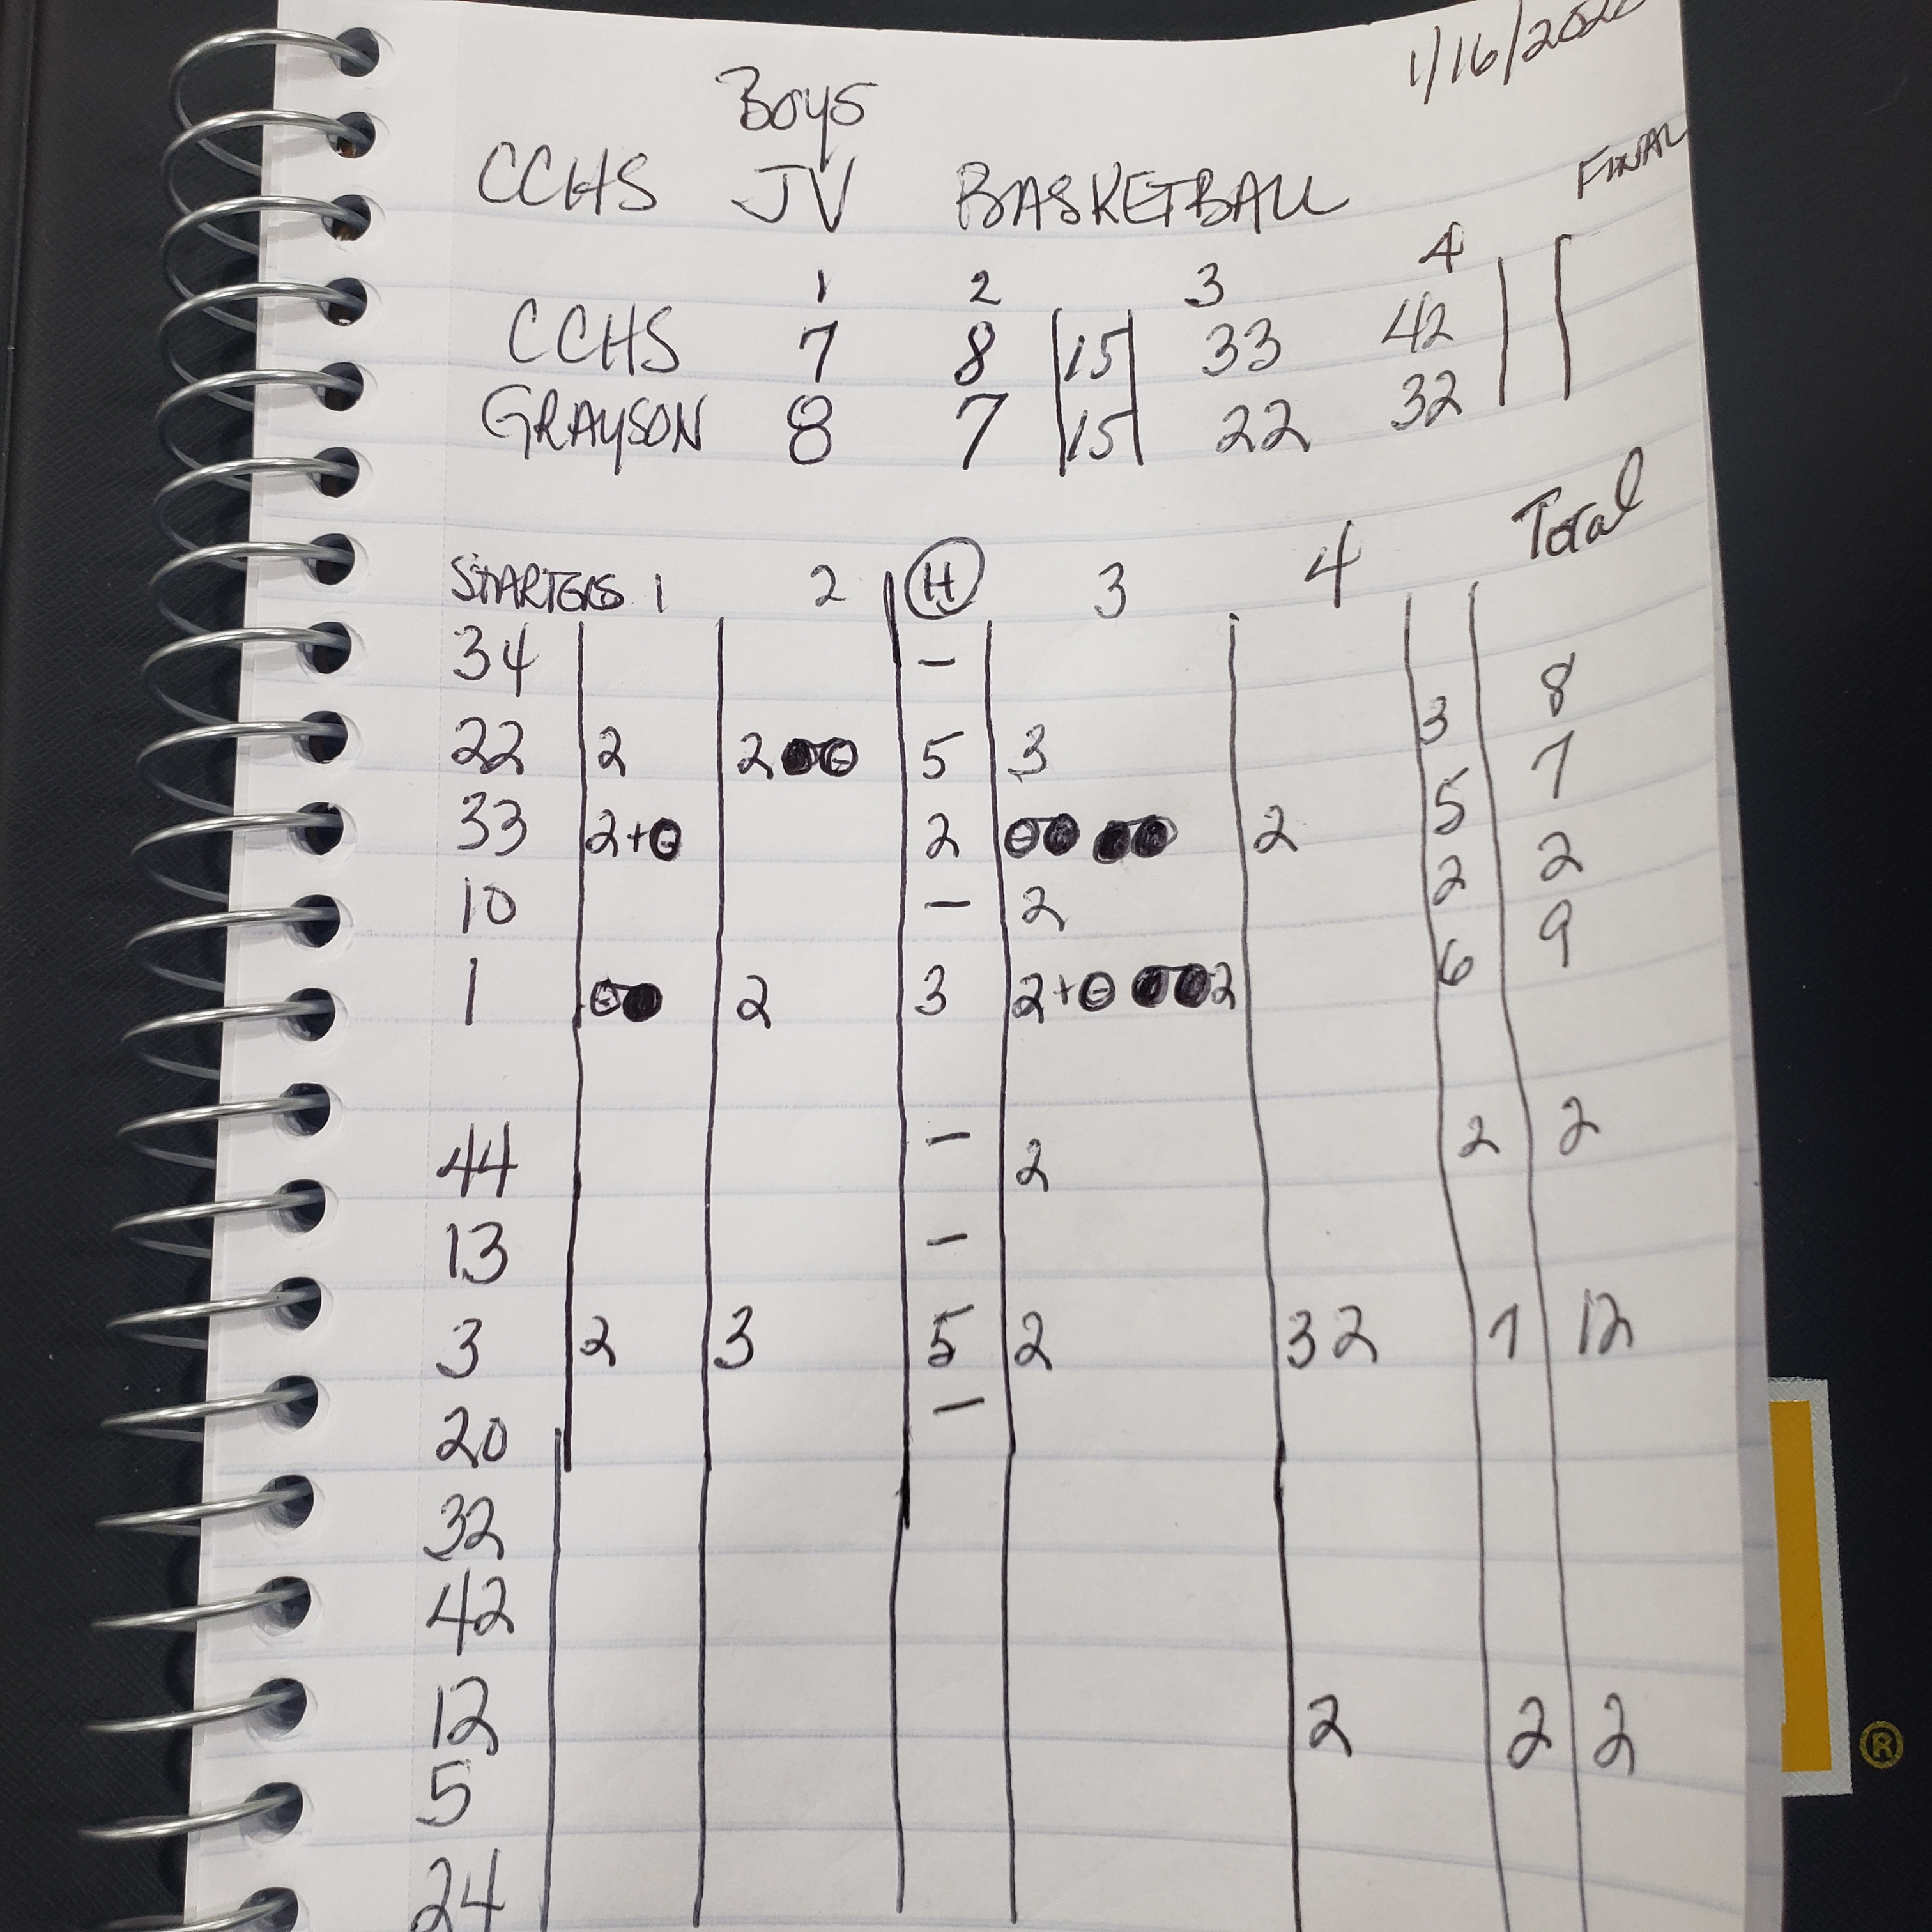 1/16/2020
Boys
CCHS JV BASKETBALL
FINAL
1 2 3 4
CCHS 7 8 15 33 42
GRAYSON 8 7 15 22 32
STARTERS 1 2 H 3 4 Total
34 –
22 2 2 5 3 3 8
33 2+ 2 2 5 7
10 – 2 2 2
1 2 3 2+ 2 6 9
44 – 2 2 2
13 –
3 2 3 5 2 3 2 7 12
20 –
32
42
12 2 2 2
5
24
®